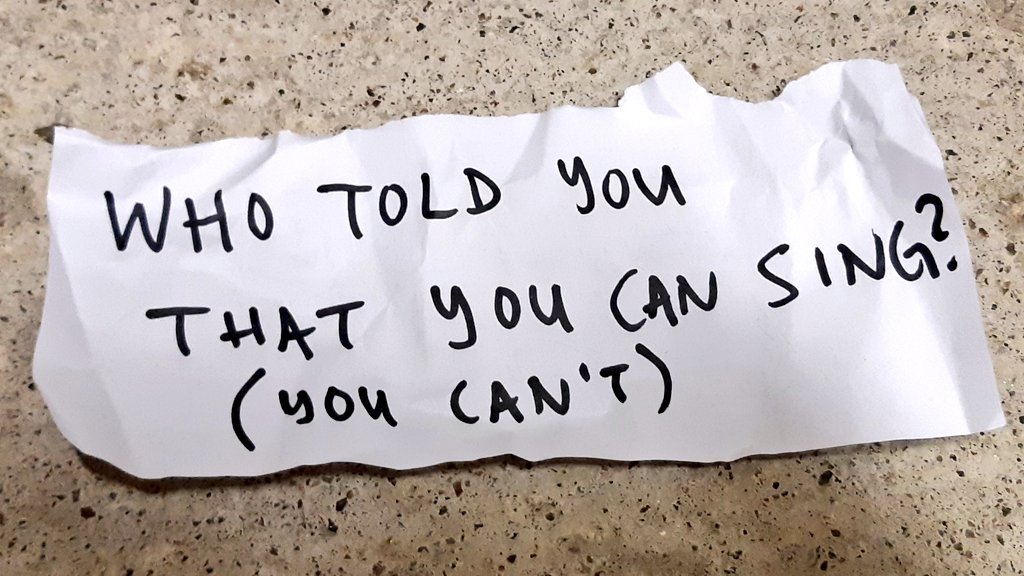 WHO TOLD YOU
THAT YOU CAN SING?
(YOU CAN'T)